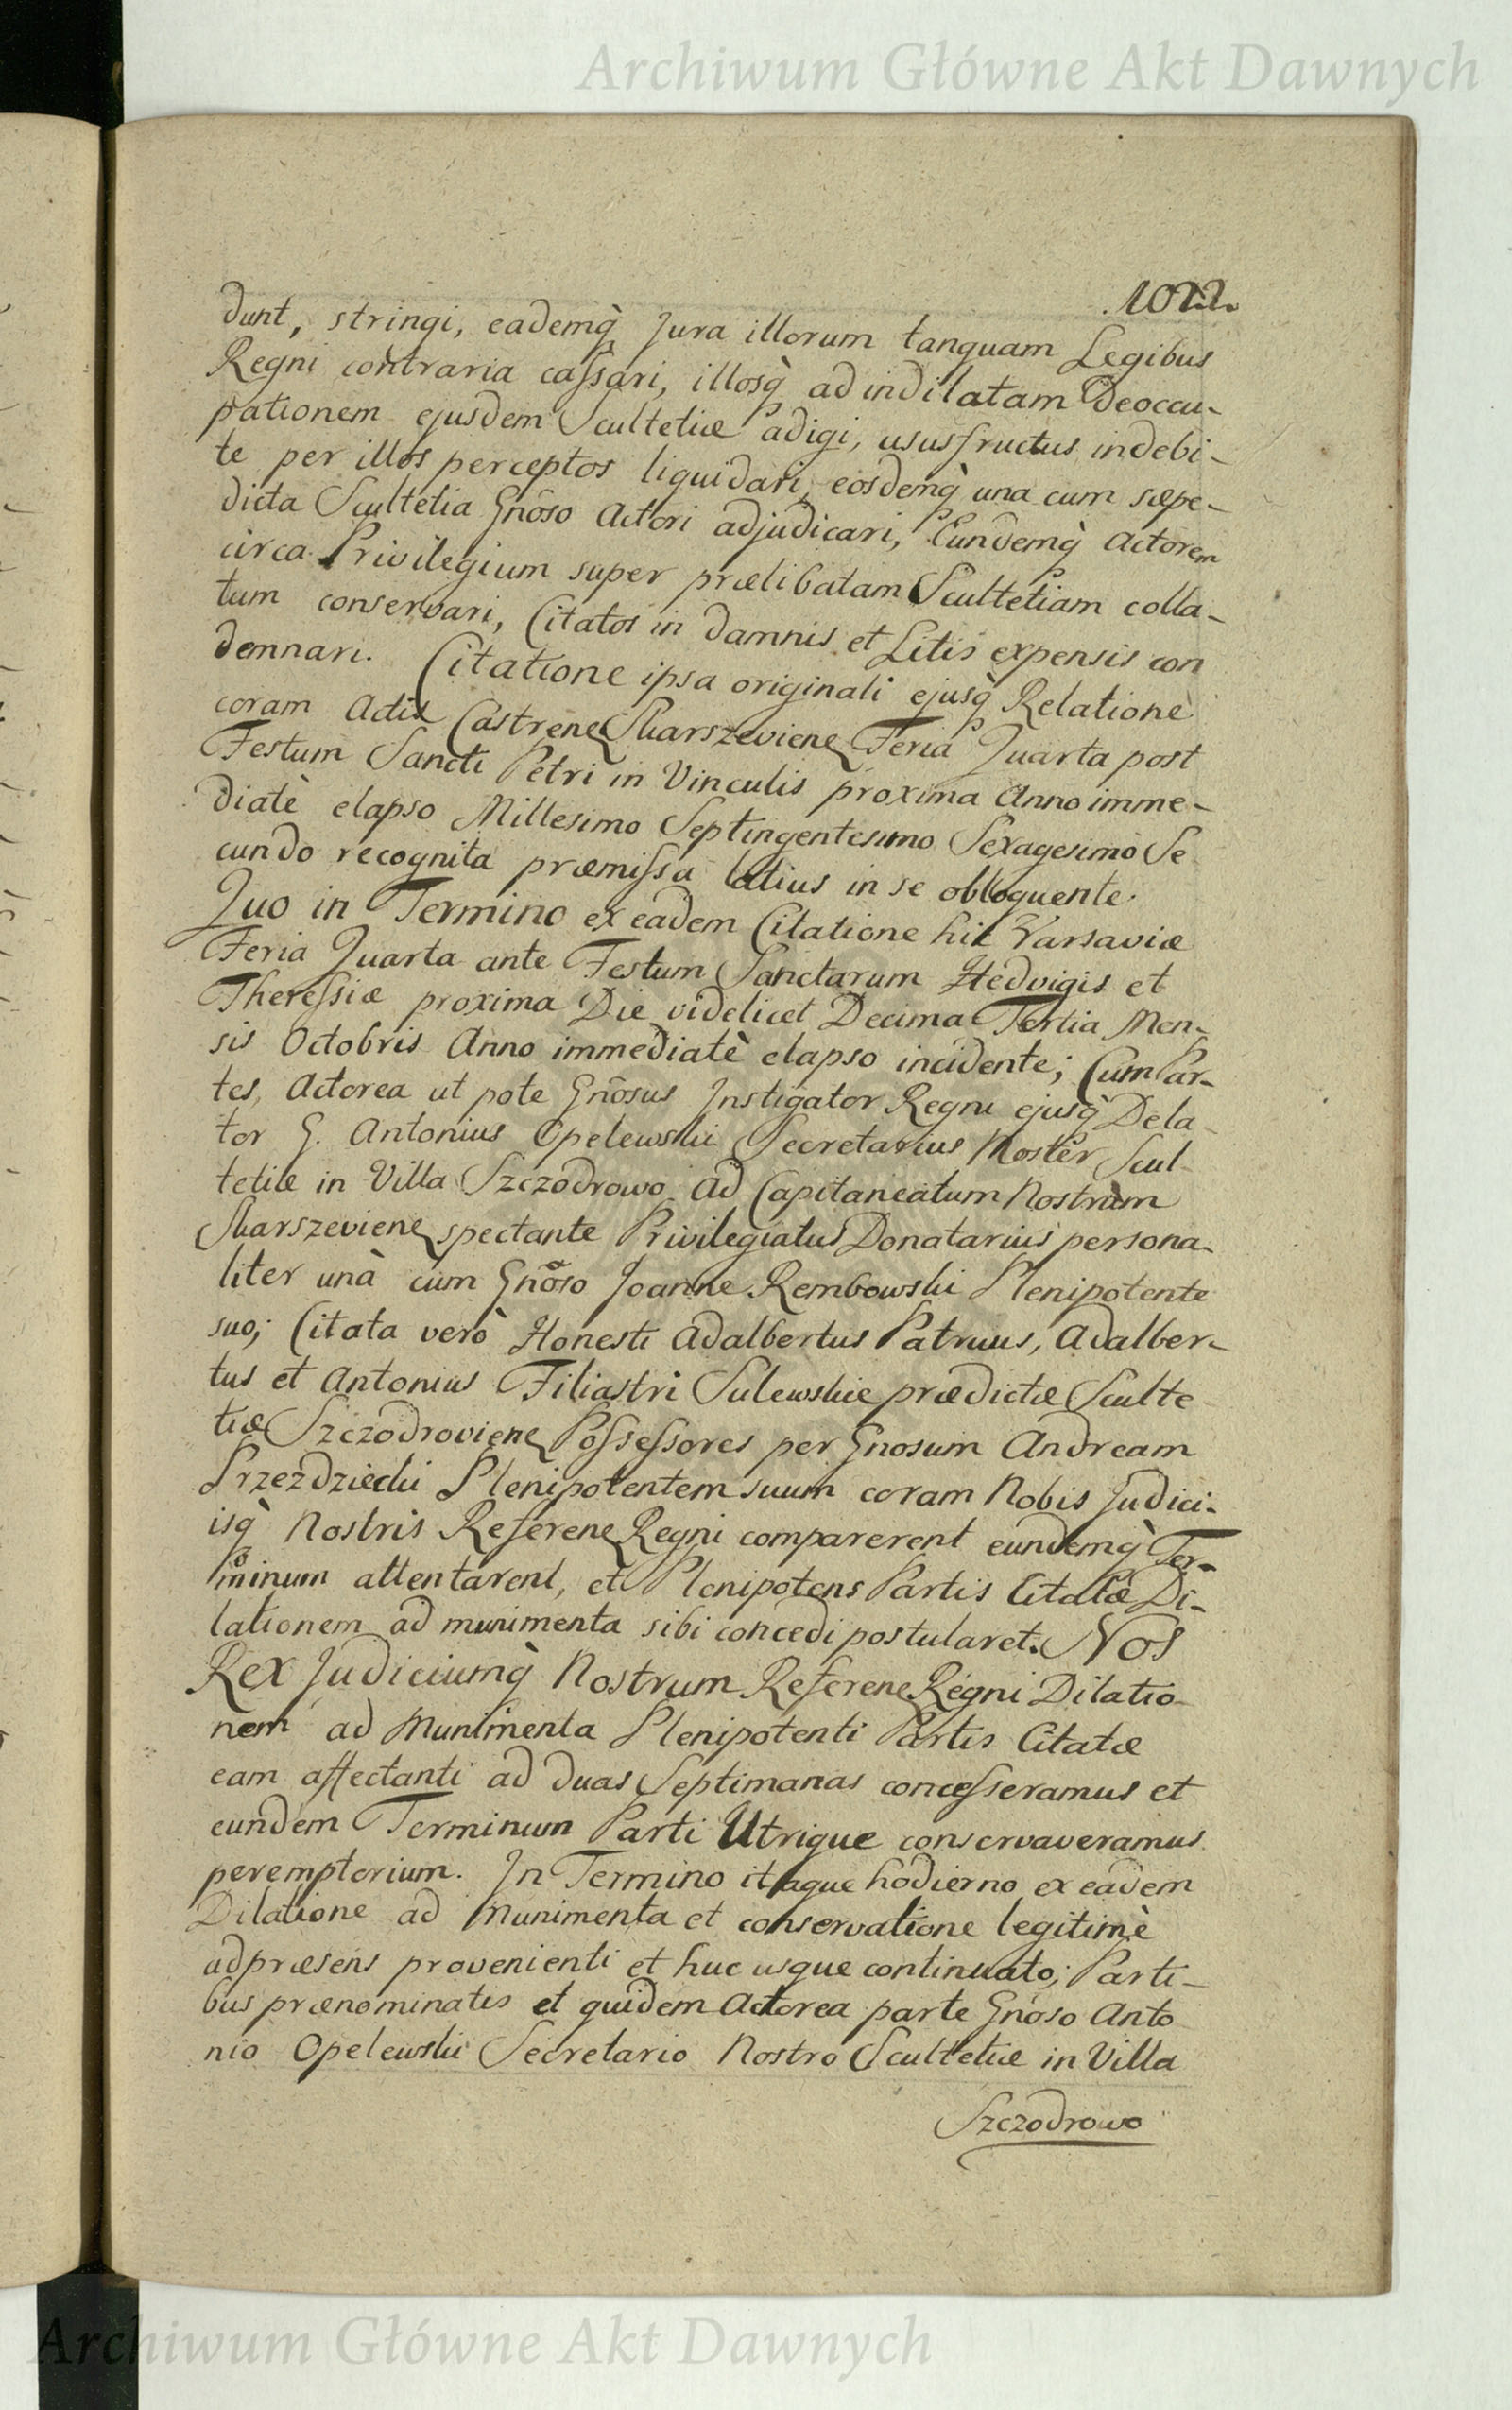 Archiwum Główne Akt Dawnych
.1022.
dunt, stringi, eademq̀ Jura illorum tanquam Legibus
Regni contraria cassari, illosq̀ ad indilatam Deoccu-
pationem ejusdem Scultetiæ adigi, ususfructus indebi-
te per illos perceptos liquidari, eosdemq̀ una cum sæpe-
dicta Scultetia Gnõso Actori adjudicari, Eundemq̀ Actorem
circa Privilegium super prælibatam Scultetiam colla-
tum conservari, Citatos in damnis et Litis expensis con
demnari. Citatione ipsa originali ejusq̀ Relatione
coram Actis Castrene Skarszeviene Feria Quarta post
Festum Sancti Petri in Vinculis proxima Anno imme-
diatè elapso Millesimo Septingentesimo Sexagesimo Se
cundo recognita præmissa latius in se obloquente.
Quo in Termino ex eadem Citatione hic Varsaviæ
Feria Quarta ante Festum Sanctarum Hedvigis et
Theressiæ proxima Die videlicet Decima Tertia Men-
sis Octobris Anno immediatè elapso incidente; Cum Par-
tes, Actorea ut pote Gnõsus Instigator Regni ejusq̀ Dela-
tor G. Antonius Opelewski Secretarius Noster Scul-
tetiæ in Villa Szczodrowo ad Capitaneatum Nostrum
Skarszeviene spectante Privilegiatus Donatarius persona-
liter unà cum Gnõso Joanne Rembowski Plenipotente
suo; Citata verò Honesti Adalbertus Patruus, Adalber-
tus et Antonius Filiastri Sulewskie prædictæ Sculte
tiæ Szczodroviene Possessores per Gnosum Andream
Przezdziecki Plenipotentem suum coram Nobis Judici-
isq̀ Nostris Referene Regni comparerent eundemq̀ Ter-
minum attentarent, et Plenipotens Partis Citatæ Di-
lationem ad munimenta sibi concedi postularet. Nos
Rex Judiciumq̀ Nostrum Referene Regni Dilatio-
nem ad Munimenta Plenipotenti Partis Citatæ
eam affectanti ad duas Septimanas concesseramus et
eundem Terminum Parti Utrique conservaveramus
peremptorium. In Termino itaque hodierno ex eadem
Dilatione ad Munimenta et conservatione legitimè
ad præsens provenienti et huc usque continuato; Parti-
bus prænominatis et quidem Actorea parte Gnõso Anto
nio Opelewski Secretario Nostro Scultetiæ in Villa
Szczodrowo
Archiwum Główne Akt Dawnych